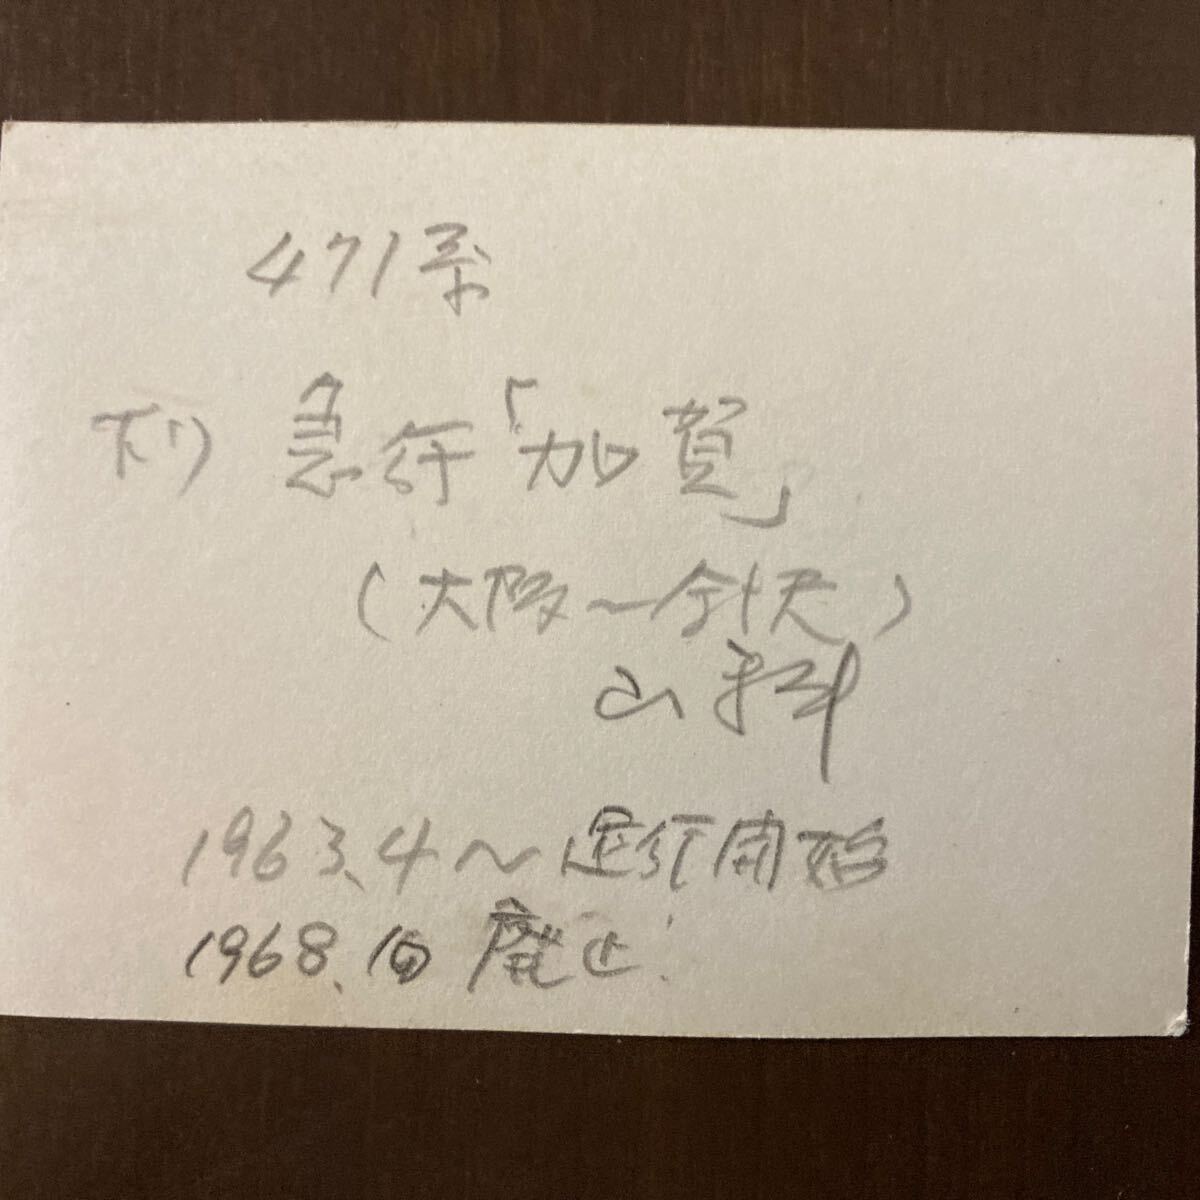 471系
下り 急行「加賀」
(大阪〜金沢)
山科
1963.4〜運行開始
1968.10 廃止